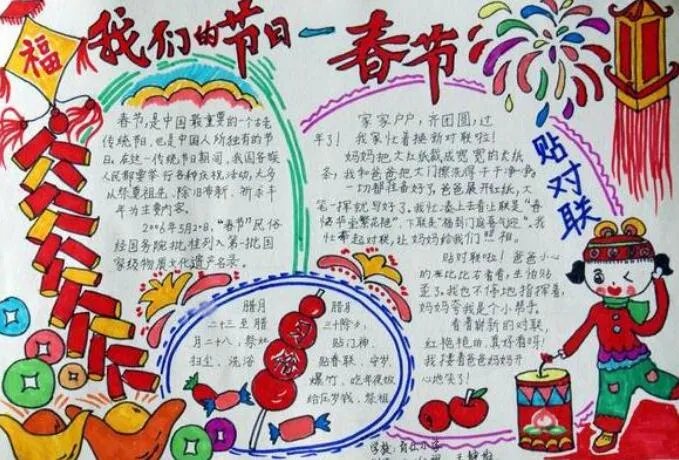 福
我们的节日—春节
春节,是中国最重要的一个古老
传统节日,也是中国人所独有的节
日。在这一传统节日期间,我国各族
人民都要举行各种庆祝活动,大多
以祭重祖先、除旧布新、祈求丰
年为主要内容。
2006年5月20日,“春节”民俗
经国务院批准列入第一批国
家级物质文化遗产名录。
家家户户,齐团圆,过
年了!我家忙着换新对联啦!
妈妈把大红纸裁成宽宽的长纸
条,我和爸爸把大门擦洗得干干净净。
一切都准备好了,爸爸展开红纸,大
笔一挥就写好了。我忙凑上去看上联是“春
临华堂繁花艳”,下联是“福到门庭喜气迎”。我
忙举起对联,让妈妈给我们照相。
贴对联啦!爸爸小心
的比比左看看,生怕贴
歪了。我也不停地指挥着,
妈妈夸我是个小帮手。
看着崭新的对联,
红艳艳的,真好看呀!
我搂着爸爸妈妈开
心地笑了!
贴对联
腊月
二十三至腊
月二十八,祭灶
扫尘、洗浴
风俗
腊月
三十除夕,
贴门神、
贴春联、守岁、
爆竹、吃年夜饭
给压岁钱、祭祖
学校:育红小学